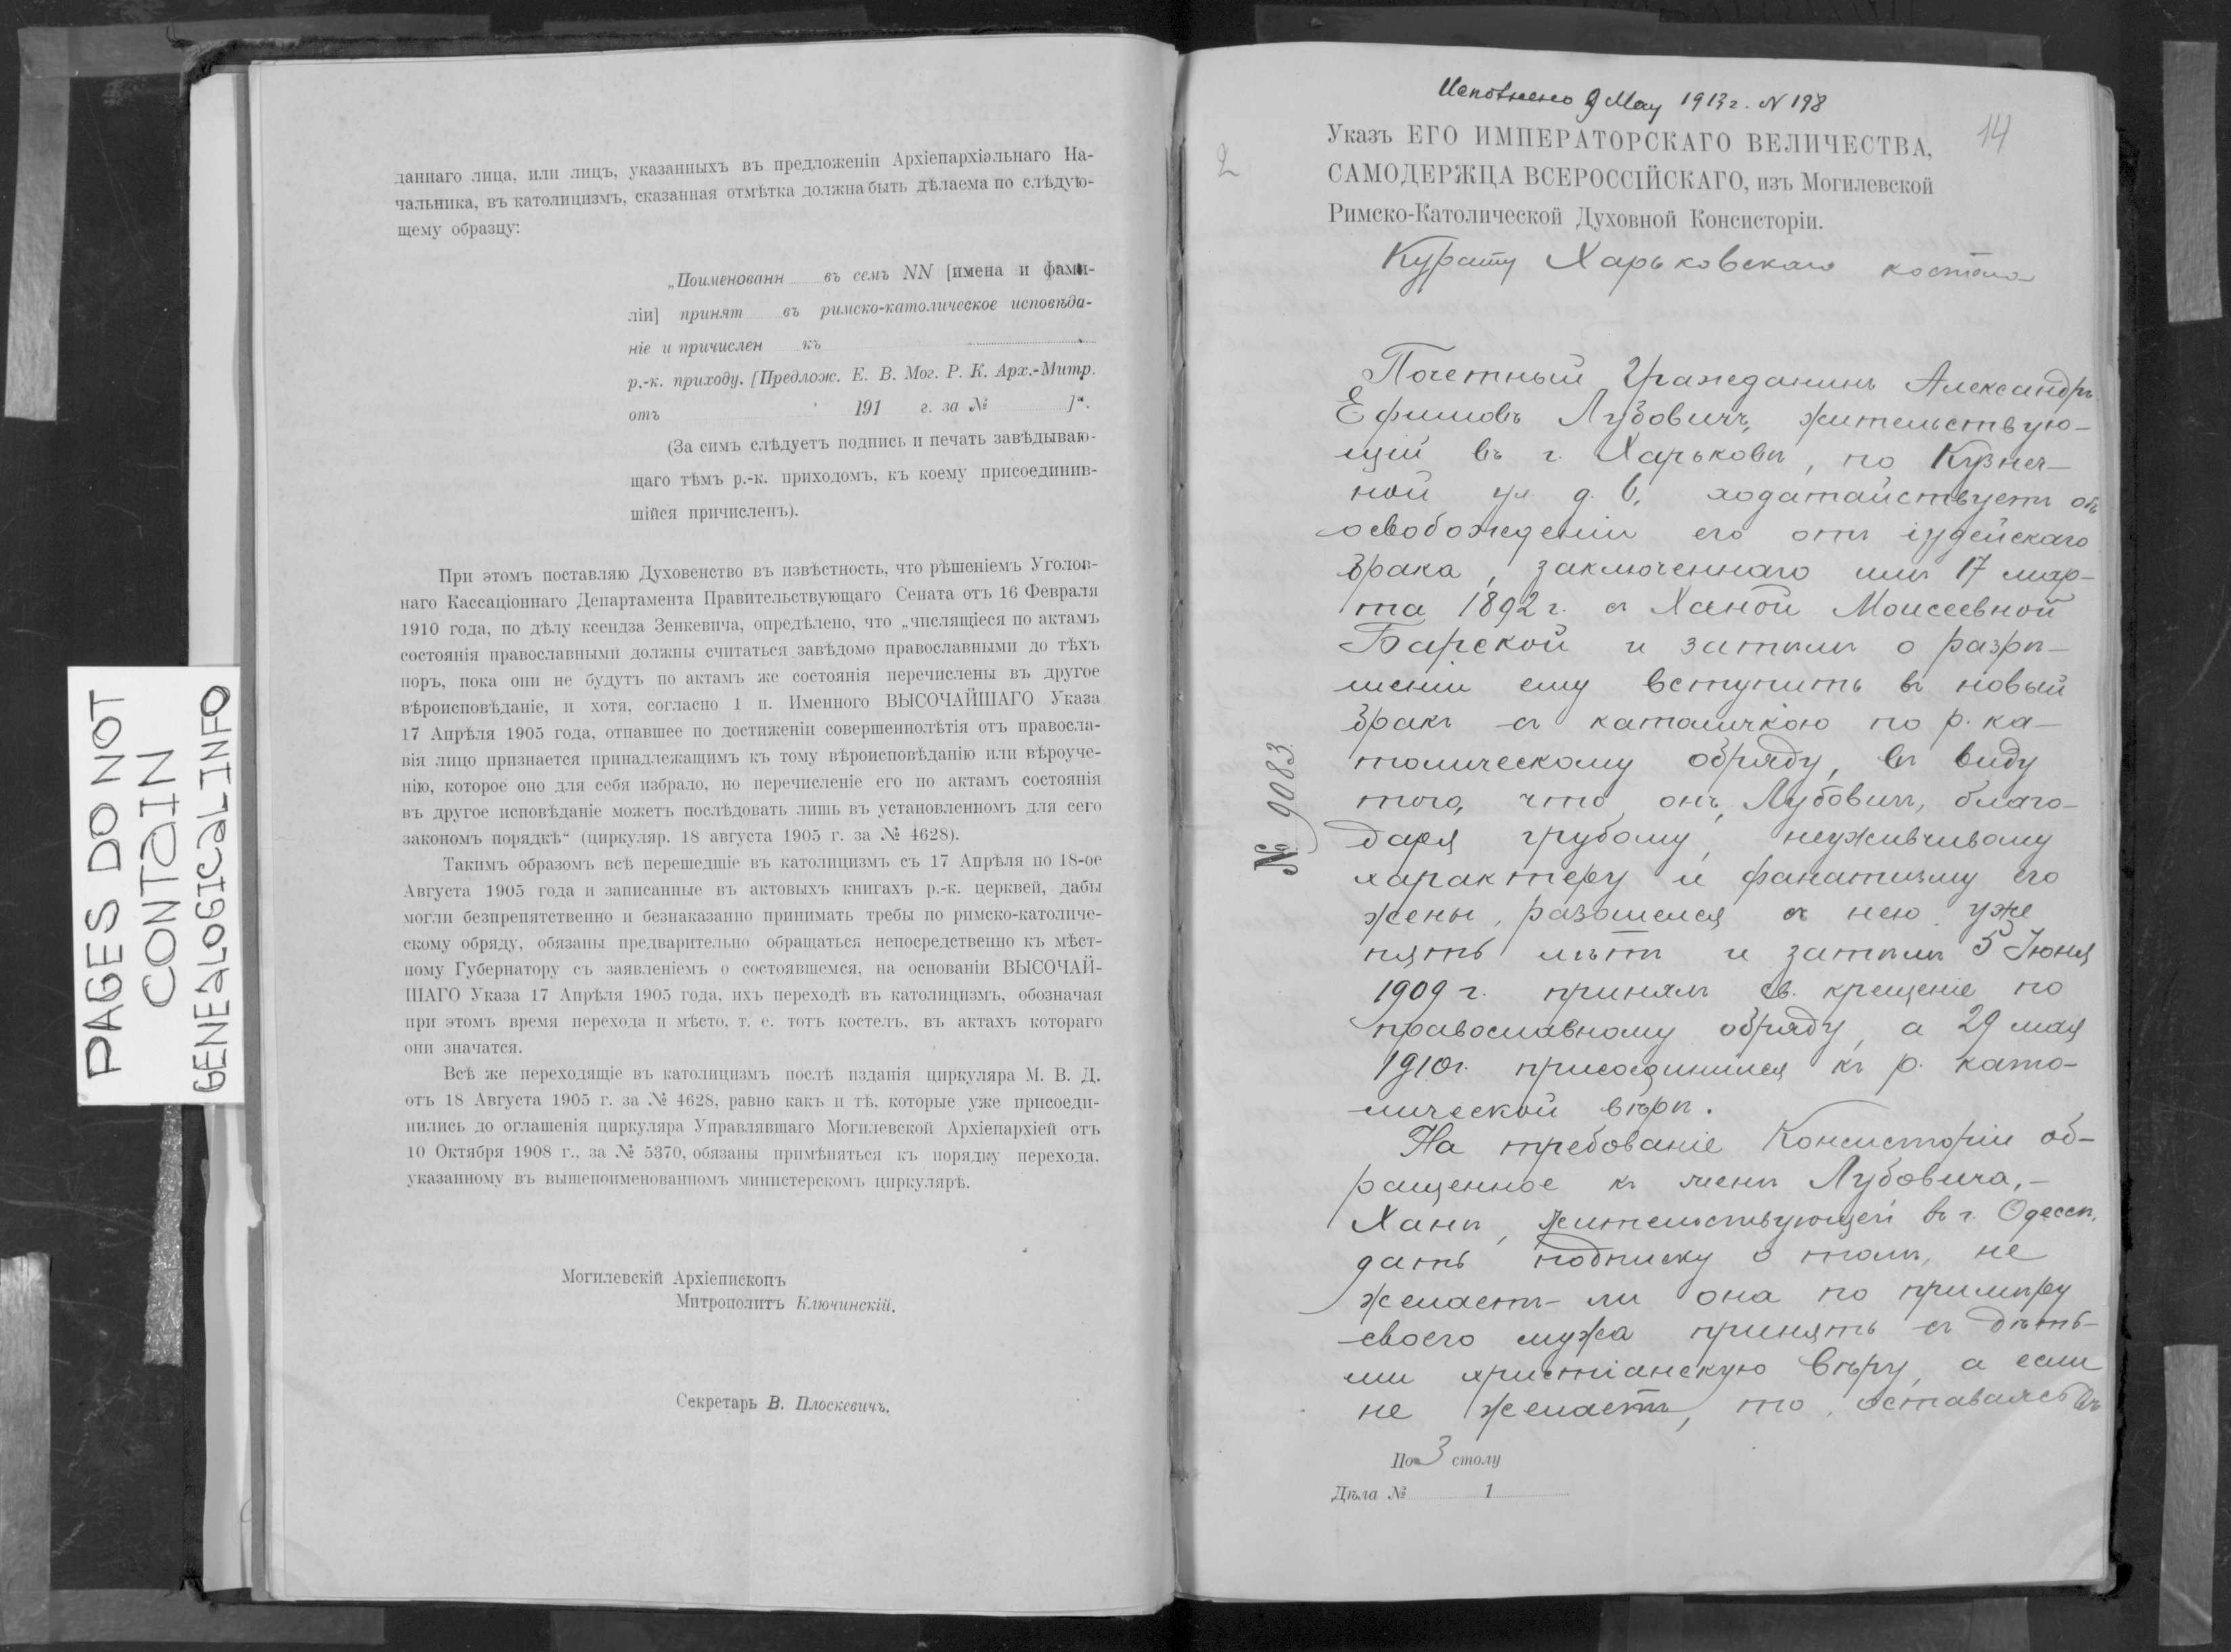 PAGES DO NOT
CONTAIN
GENEALOGICAL INFO
даннаго лица, или лицъ, указанныхъ въ предложеніи Архіепархіальнаго На-
чальника, въ католицизмъ, сказанная отмѣтка должна быть дѣлаема по слѣдую-
щему образцу:
„Поименованн въ семъ NN [имена и фами-
ліи] принят въ римско-католическое исповѣда-
ніе и причислен къ
р.-к. приходу. [Предлож. Е. В. Мог. Р. К. Арх.-Митр.
отъ 191 г. за № ]“.
(За симъ слѣдуетъ подпись и печать завѣдываю-
щаго тѣмъ р.-к. приходомъ, къ коему присоединив-
шійся причисленъ).
При этомъ поставляю Духовенство въ извѣстность, что рѣшеніемъ Уголов-
наго Кассаціоннаго Департамента Правительствующаго Сената отъ 16 Февраля
1910 года, по дѣлу ксендза Зенкевича, опредѣлено, что „числящіеся по актамъ
состоянія православными должны считаться завѣдомо православными до тѣхъ
поръ, пока они не будутъ по актамъ же состоянія перечислены въ другое
вѣроисповѣданіе, и хотя, согласно 1 п. Именного ВЫСОЧАЙШАГО Указа
17 Апрѣля 1905 года, отпавшее по достиженіи совершеннолѣтія отъ правосла-
вія лицо признается принадлежащимъ къ тому вѣроисповѣданію или вѣроуче-
нію, которое оно для себя избрало, но перечисленіе его по актамъ состоянія
въ другое исповѣданіе можетъ послѣдовать лишь въ установленномъ для сего
закономъ порядкѣ“ (циркуляр. 18 августа 1905 г. за № 4628).
Такимъ образомъ всѣ перешедшіе въ католицизмъ съ 17 Апрѣля по 18-ое
Августа 1905 года и записанные въ актовыхъ книгахъ р.-к. церквей, дабы
могли безпрепятственно и безнаказанно принимать требы по римско-католиче-
скому обряду, обязаны предварительно обращаться непосредственно къ мѣст-
ному Губернатору съ заявленіемъ о состоявшемся, на основаніи ВЫСОЧАЙ-
ШАГО Указа 17 Апрѣля 1905 года, ихъ переходѣ въ католицизмъ, обозначая
при этомъ время перехода и мѣсто, т. е. тотъ костелъ, въ актахъ котораго
они значатся.
Всѣ же переходящіе въ католицизмъ послѣ изданія циркуляра М. В. Д.
отъ 18 Августа 1905 г. за № 4628, равно какъ и тѣ, которые уже присоеди-
нились до оглашенія циркуляра Управлявшаго Могилевской Архіепархіей отъ
10 Октября 1908 г., за № 5370, обязаны примѣняться къ порядку перехода,
указанному въ вышепоименованномъ министерскомъ циркулярѣ.
Могилевскій Архіепископъ
Митрополитъ Ключинскій.
Секретарь В. Плоскевичъ.
Исполнено 9 May 1913 г. N 198
14
2
Указъ ЕГО ИМПЕРАТОРСКАГО ВЕЛИЧЕСТВА,
САМОДЕРЖЦА ВСЕРОССІЙСКАГО, изъ Могилевской
Римско-Католической Духовной Консисторіи.
Курату Харьковскаго костела
Почетный Гражданинъ Александръ
Ефимовъ Лубовичъ, жительствую-
щій въ г. Харьковѣ, по Кузнеч-
ной ул. д. 6, ходатайствуетъ объ
освобожденіи его отъ іудейскаго
брака, заключеннаго имъ 17 мар-
та 1892 г. съ Ханой Моисеевной
Барской и затѣмъ о разрѣ-
шеніи ему вступить въ новый
бракъ съ католичкою по р. ка-
толическому обряду, въ виду
того, что онъ, Лубовичъ, благо-
даря грубому, неуживчивому
характеру и фанатизму его
жены, разошелся съ нею уже
пять лѣтъ и затѣмъ 5 Іюня
1909 г. принялъ св. крещеніе по
православному обряду, а 29 мая
1910 г. присоединился къ р. като-
лической вѣрѣ.
На требованіе Консисторіи об-
ращенное къ женѣ Лубовича,-
Ханѣ, жительствующей въ г. Одессѣ,
дать подписку о томъ, не
желаетъ-ли она по примѣру
своего мужа принять съ дѣть-
ми христіанскую вѣру, а если
не желаетъ, то, оставаясь въ
№ 9083.
По 3 столу
Дѣла № 1